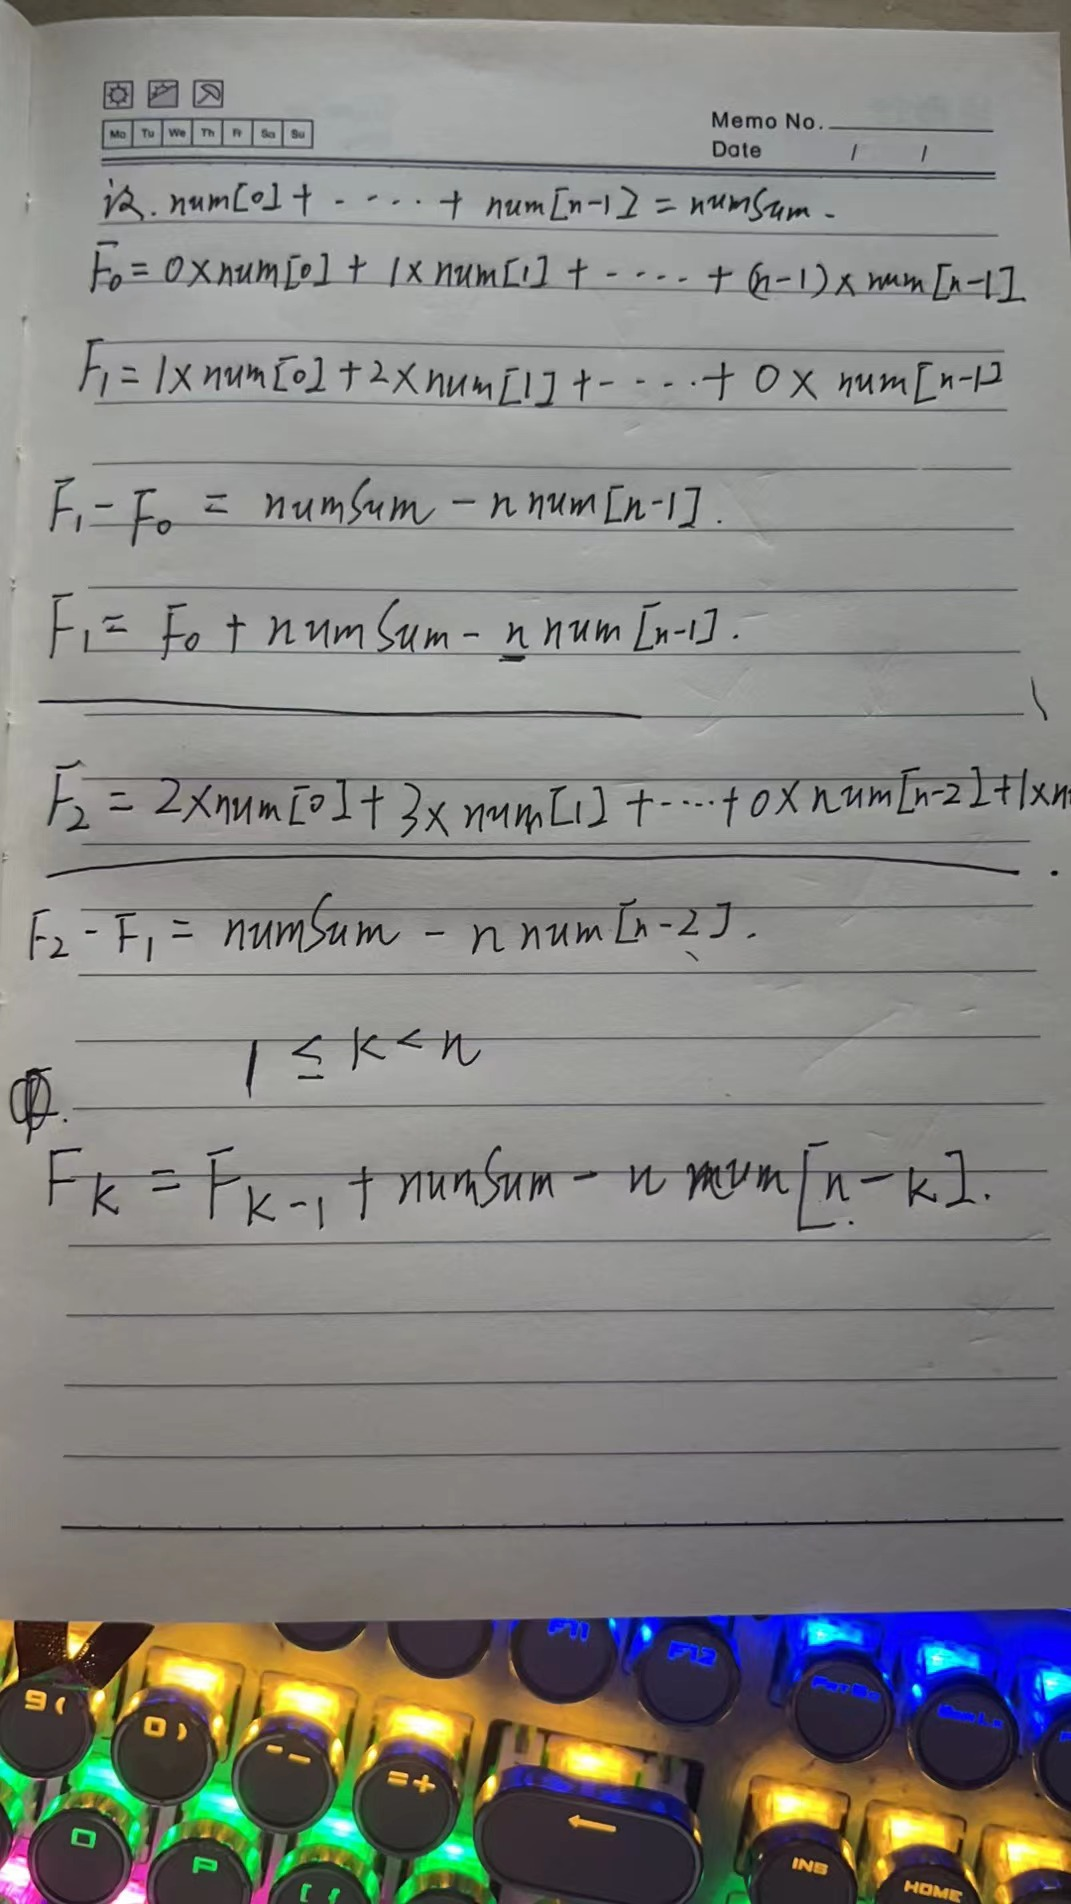 Mo Tu We Th Fr Sa Su
Memo No.
Date / /
设. num[0] + ····· + num[n-1] = numSum.
F₀ = 0×num[0] + 1×num[1] + ····· + (n-1)×num[n-1]
F₁ = 1×num[0] + 2×num[1] + ····· + 0×num[n-1]
F₁ - F₀ = numSum - n num[n-1].
F₁ = F₀ + numSum - n num[n-1].
F₂ = 2×num[0] + 3×num[1] + ····· + 0×num[n-2] + 1×n
F₂ - F₁ = numSum - n num[n-2].
1 ≤ k < n
Fₖ = Fₖ₋₁ + numSum - n num[n-k].
F11 F12
9 ( 0 ) - - = +
O P [ { ← INS HOME